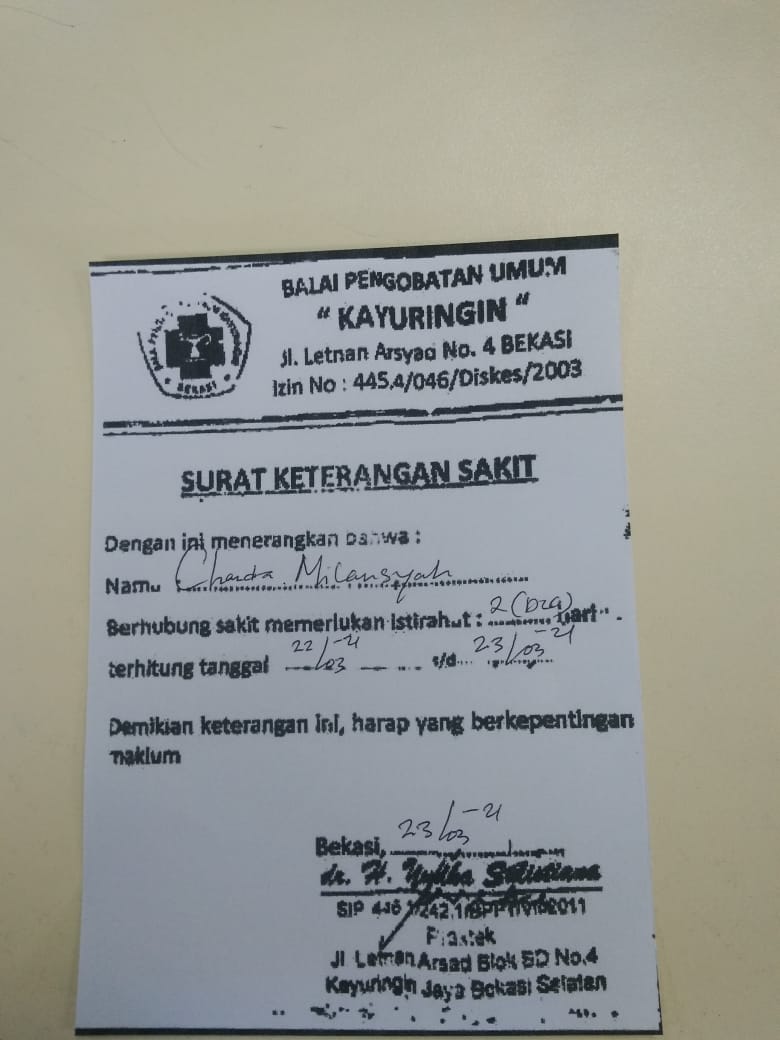 BALAI PENGOBATAN UMUM
" KAYURINGIN "
Jl. Letnan Arsyad No. 4 BEKASI
Izin No : 445.4/046/Diskes/2003
BEKASI
SURAT KETERANGAN SAKIT
Dengan ini menerangkan bahwa :
Nama : Chanda Milansyah
Berhubung sakit memerlukan istirahat : 2 (Dua) hari
terhitung tanggal 22/03-21 s/d 23/03-21
Demikian keterangan ini, harap yang berkepentingan
maklum
Bekasi, 23/03-21
dr. H. Sulistiana
SIP
Praktek
Jl Letnan Arsad Blok BD No.4
Kayuringin Jaya Bekasi Selatan